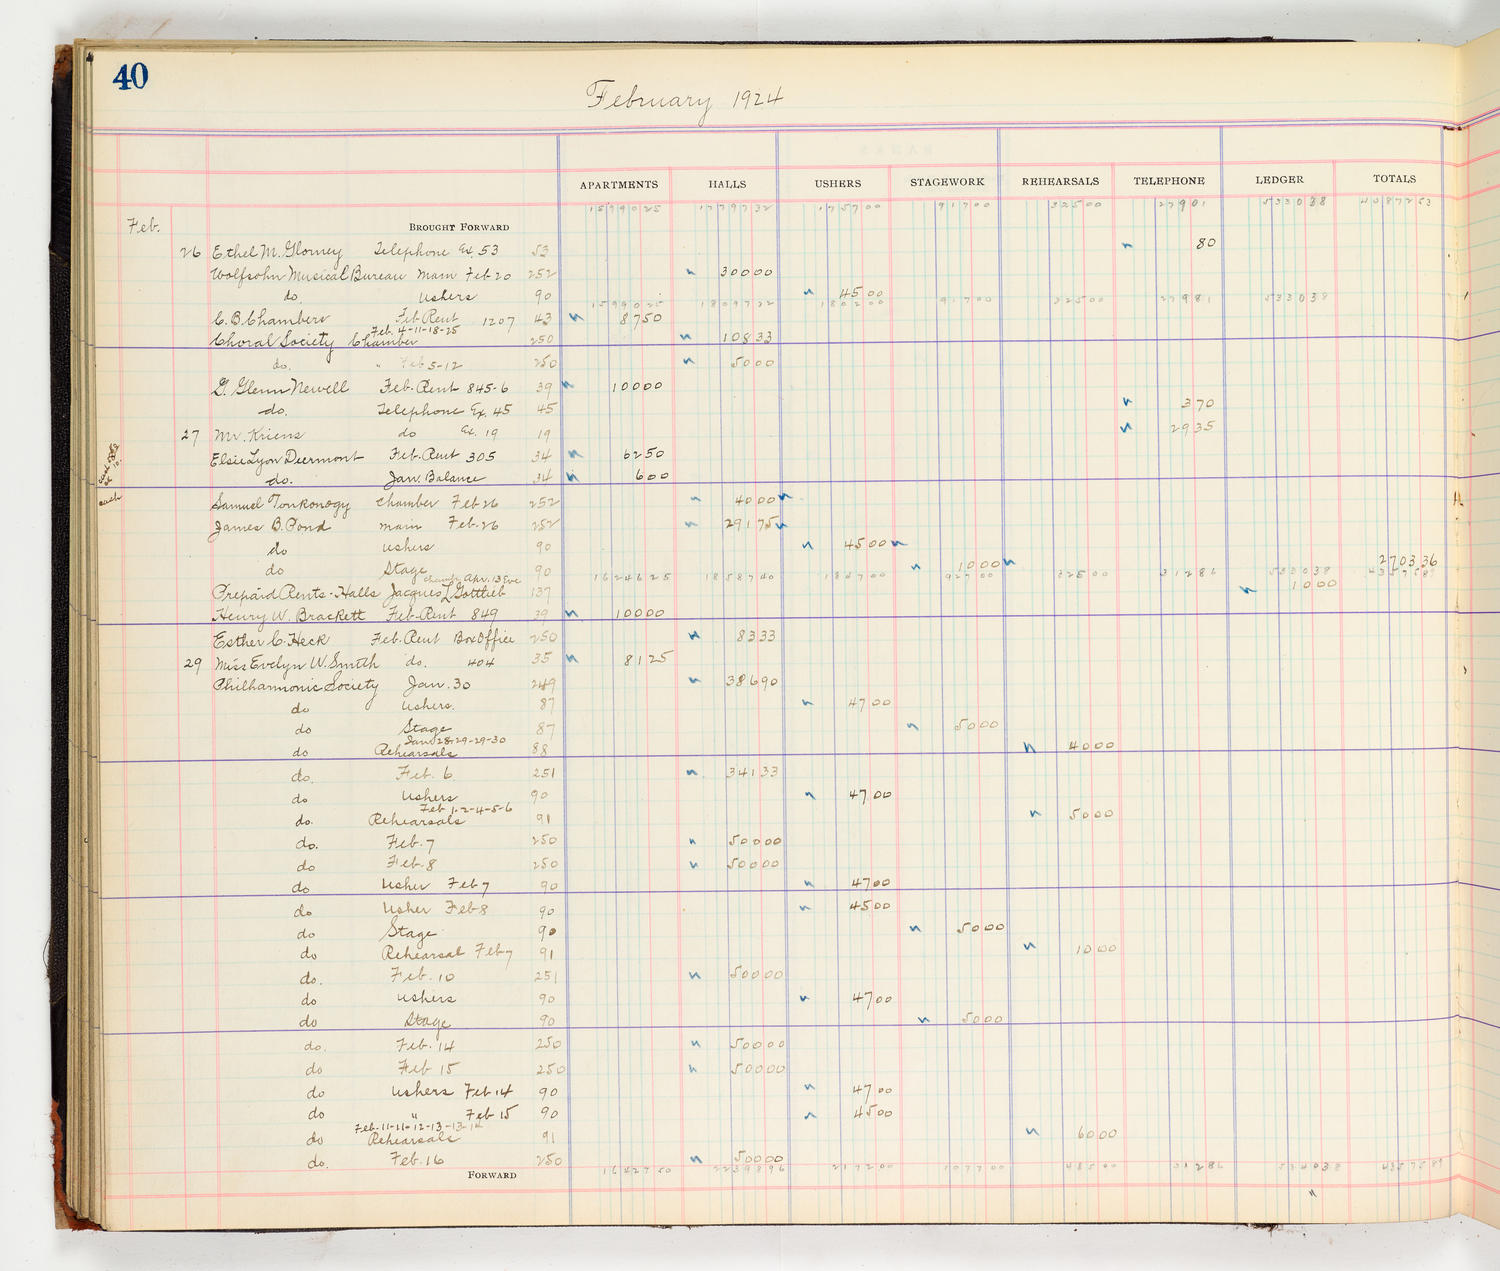 40
February 1924
APARTMENTS HALLS USHERS STAGEWORK REHEARSALS TELEPHONE LEDGER TOTALS
1579025 1779732 175700 91700 32500 27901 533038 4087253
Feb.
BROUGHT FORWARD
26 Ethel M. Glorney Telephone Ex. 53 53 80
Wolfsohn Musical Bureau Main Feb 20 252 30000
do. Ushers 90 4500
1599025 1809732 180200 91700 32500 27981 533038
C. B. Chambers Feb. Rent 1207 43 8750
Feb. 4-11-18-25
Choral Society Chamber 250 10833
do. " Feb 5-12 250 5000
G. Glenn Newell Feb. Rent 845-6 39 10000
do. Telephone Ex. 45 45 370
27 Mr. Kriens do Ex. 19 19 2935
Elsie Lyon Deermont Feb. Rent 305 34 6250
do. Jan. Balance 34 600
cash Samuel Tonkonogy Chamber Feb 26 252 4000
James B. Pond Main Feb. 26 252 29175
do Ushers 90 4500
do Stage 90 1000 270336
Chamb. Apr. 13 Eve
1624625 1858740 184700 92700 32500 31286 533038
Prepaid Rents-Halls Jacques L Gottlieb 137 1000
Henry W. Brackett Feb. Rent 849 39 10000
Esther C. Heck Feb. Rent Box Office 250 8333
29 Miss Evelyn W. Smith do. 404 35 8125
Philharmonic Society Jan. 30 249 38690
do Ushers. 87 4700
do Stage 87 5000
Jan. 28-29-29-30
do Rehearsals 88 4000
do. Feb. 6 251 34133
do Ushers 90 4700
Feb 1-2-4-5-6
do. Rehearsals 91 5000
do. Feb. 7 250 50000
do Feb. 8 250 50000
do Usher Feb 7 90 4700
do Usher Feb 8 90 4500
do Stage 90 5000
do Rehearsal Feb 7 91 1000
do. Feb. 10 251 50000
do Ushers 90 4700
do Stage 90 5000
do. Feb. 14 250 50000
do Feb 15 250 50000
do Ushers Feb 14 90 4700
do " Feb 15 90 4500
Feb. 11-11-12-13-13-14
do Rehearsals 91 6000
do. Feb. 16 250 50000
FORWARD 1642750 2239896 217200 107700 48500 31286 534038
"